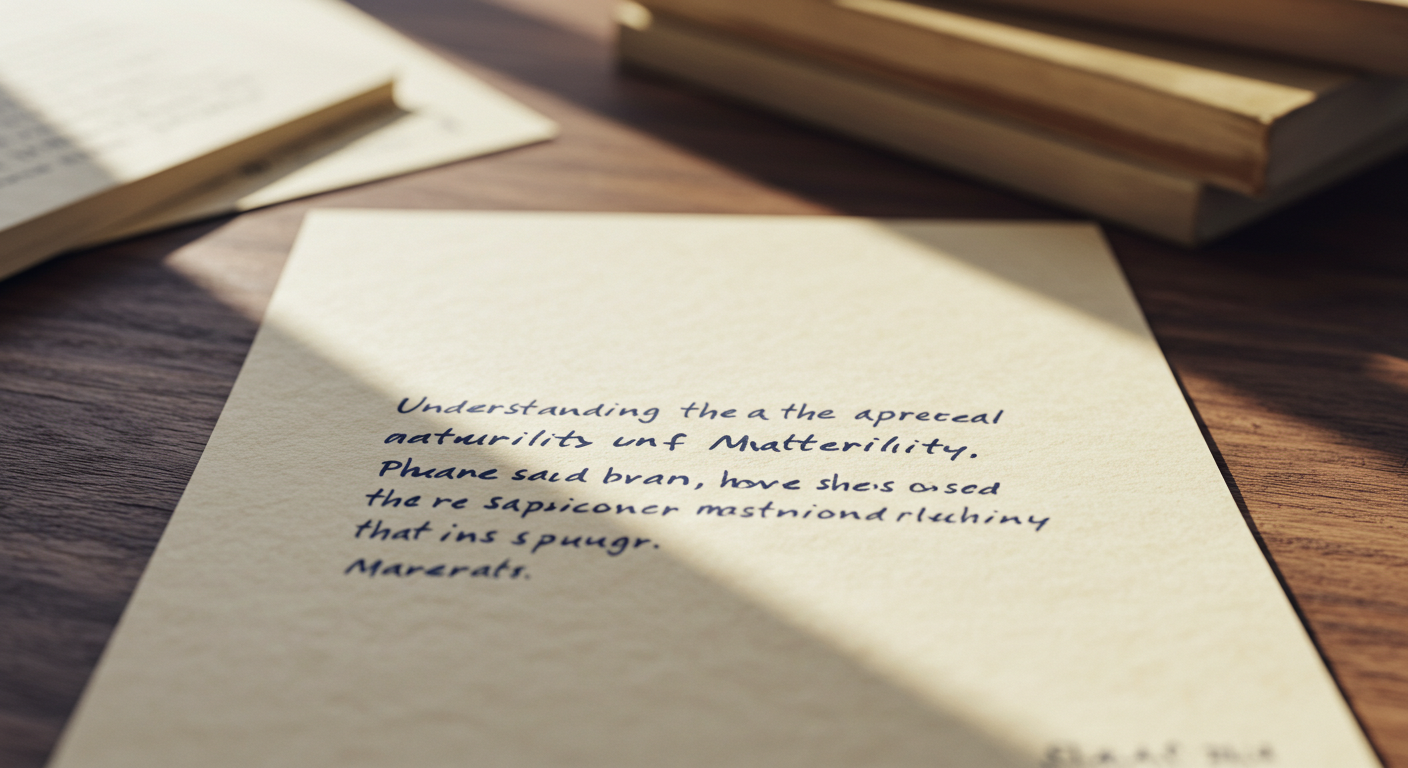 Understanding the a the apreceal
aatwurilits unf Matterility.
Phuane said bran, hove she's osed
the re sapriconcr mastniond rluhiny
that ins spuugr.
Marerats.